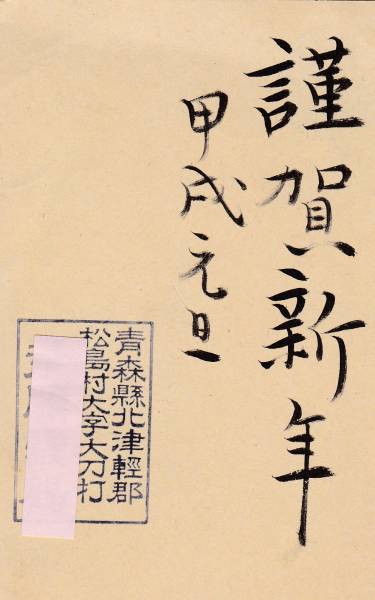 謹賀新年
甲戌元旦
青森縣北津軽郡
松島村大字大刀打